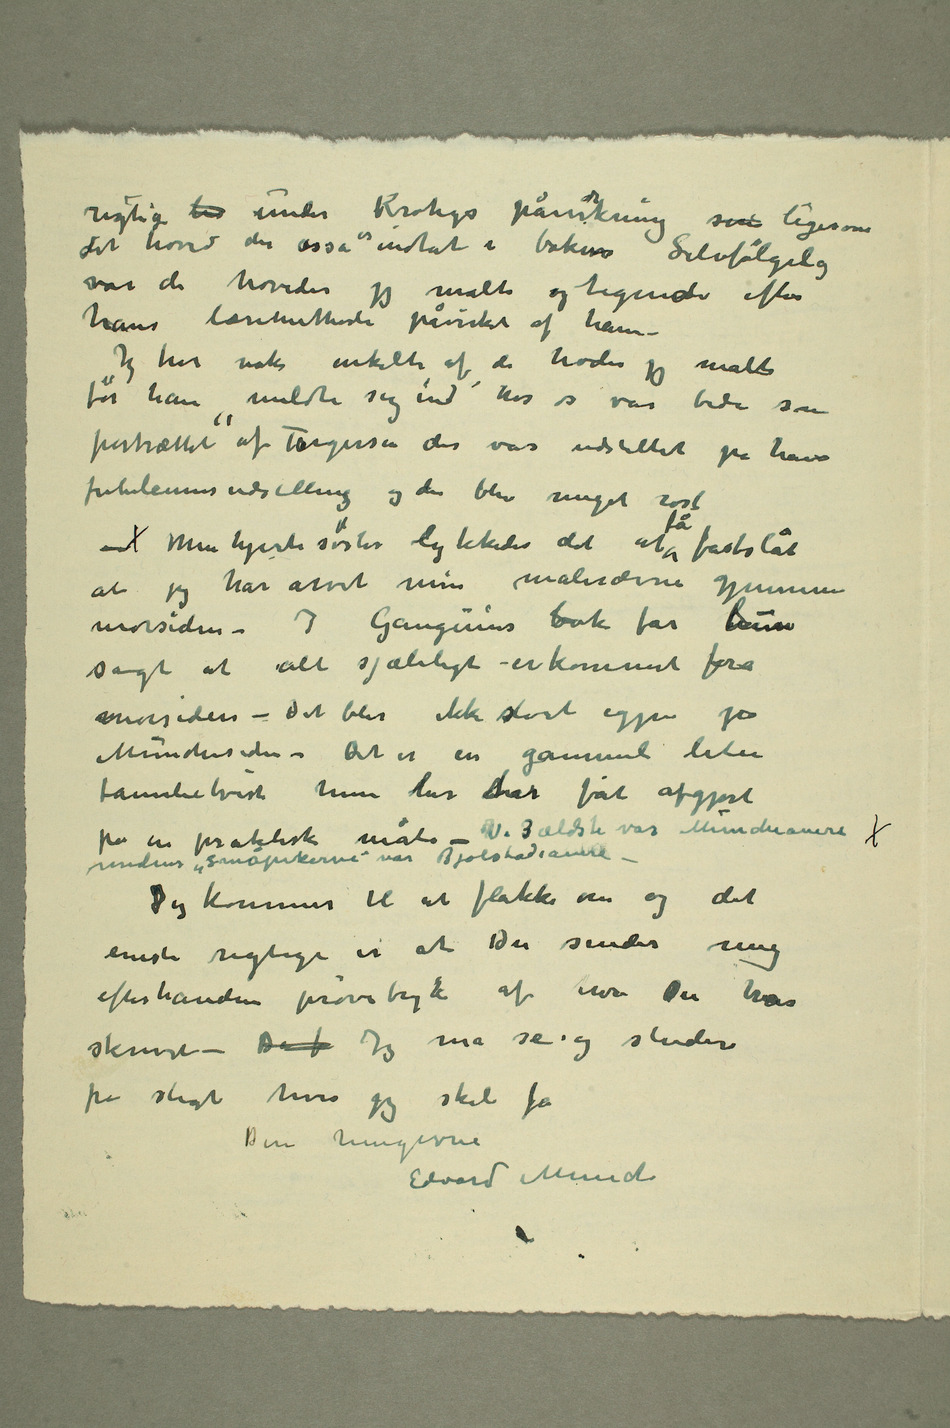 rigtig bes under Krohgs påvirkning som ligesom
det hoved der osså er indtat i boken Selvfølgelig
var de hoveder jg malte og tegnede efter
hans læremethode påvirket af ham –
Jg tror nok enkelte af de hoder jg malte
før han "meldte sig ind" hos os var bedre som
portrættet af Torgersen der var udstillet på hans
jubilæumsudstilling og der blev meget rost
– X Min kjerte søster lykkedes det at få fastslåt
at jg har arvet mine maleævne gjennem
morsiden – I Gauguins bok får hun
sagt at alt sjæleligt er kommet fra
morsiden – Det blir ikke stort igjen på
Munchsiden – Det er en gammel liten
familietvist hun her har fåt afgjort
på en praktisk måte – De 3 ældste var Munchianere X
mens „småpikerne" var Bjølstadianere –
Jeg kommer til at flakke om og det
eneste rigtige er at Du sender mig
efterhånden prøvetryk af hva Du har
skrevet – Du f Jg må se og studere
på sligt hvis jg skal få
Din hengivne
Edvard Munch